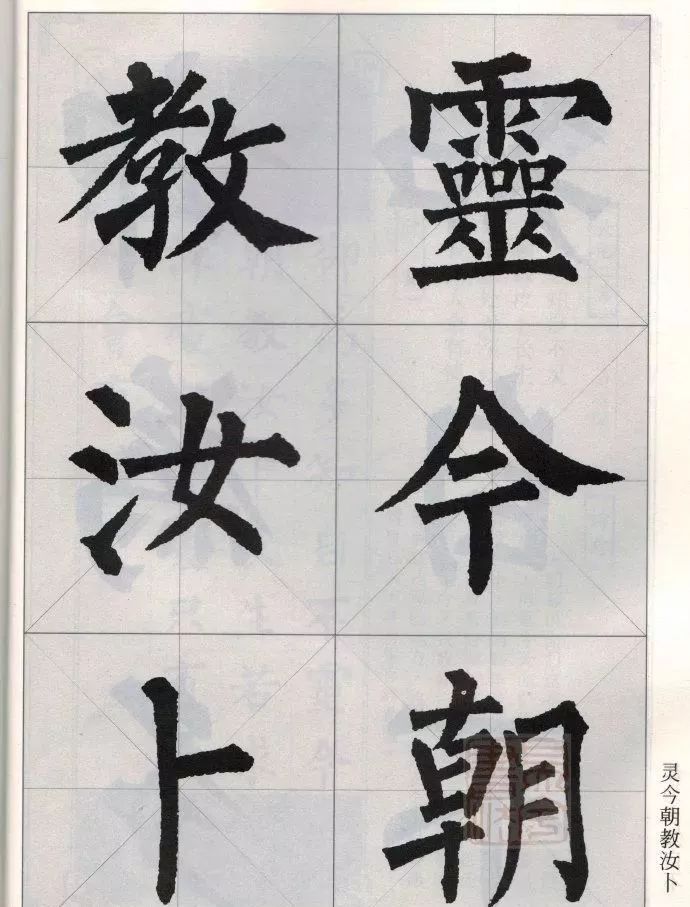 靈今朝
教汝卜
灵今朝教汝卜